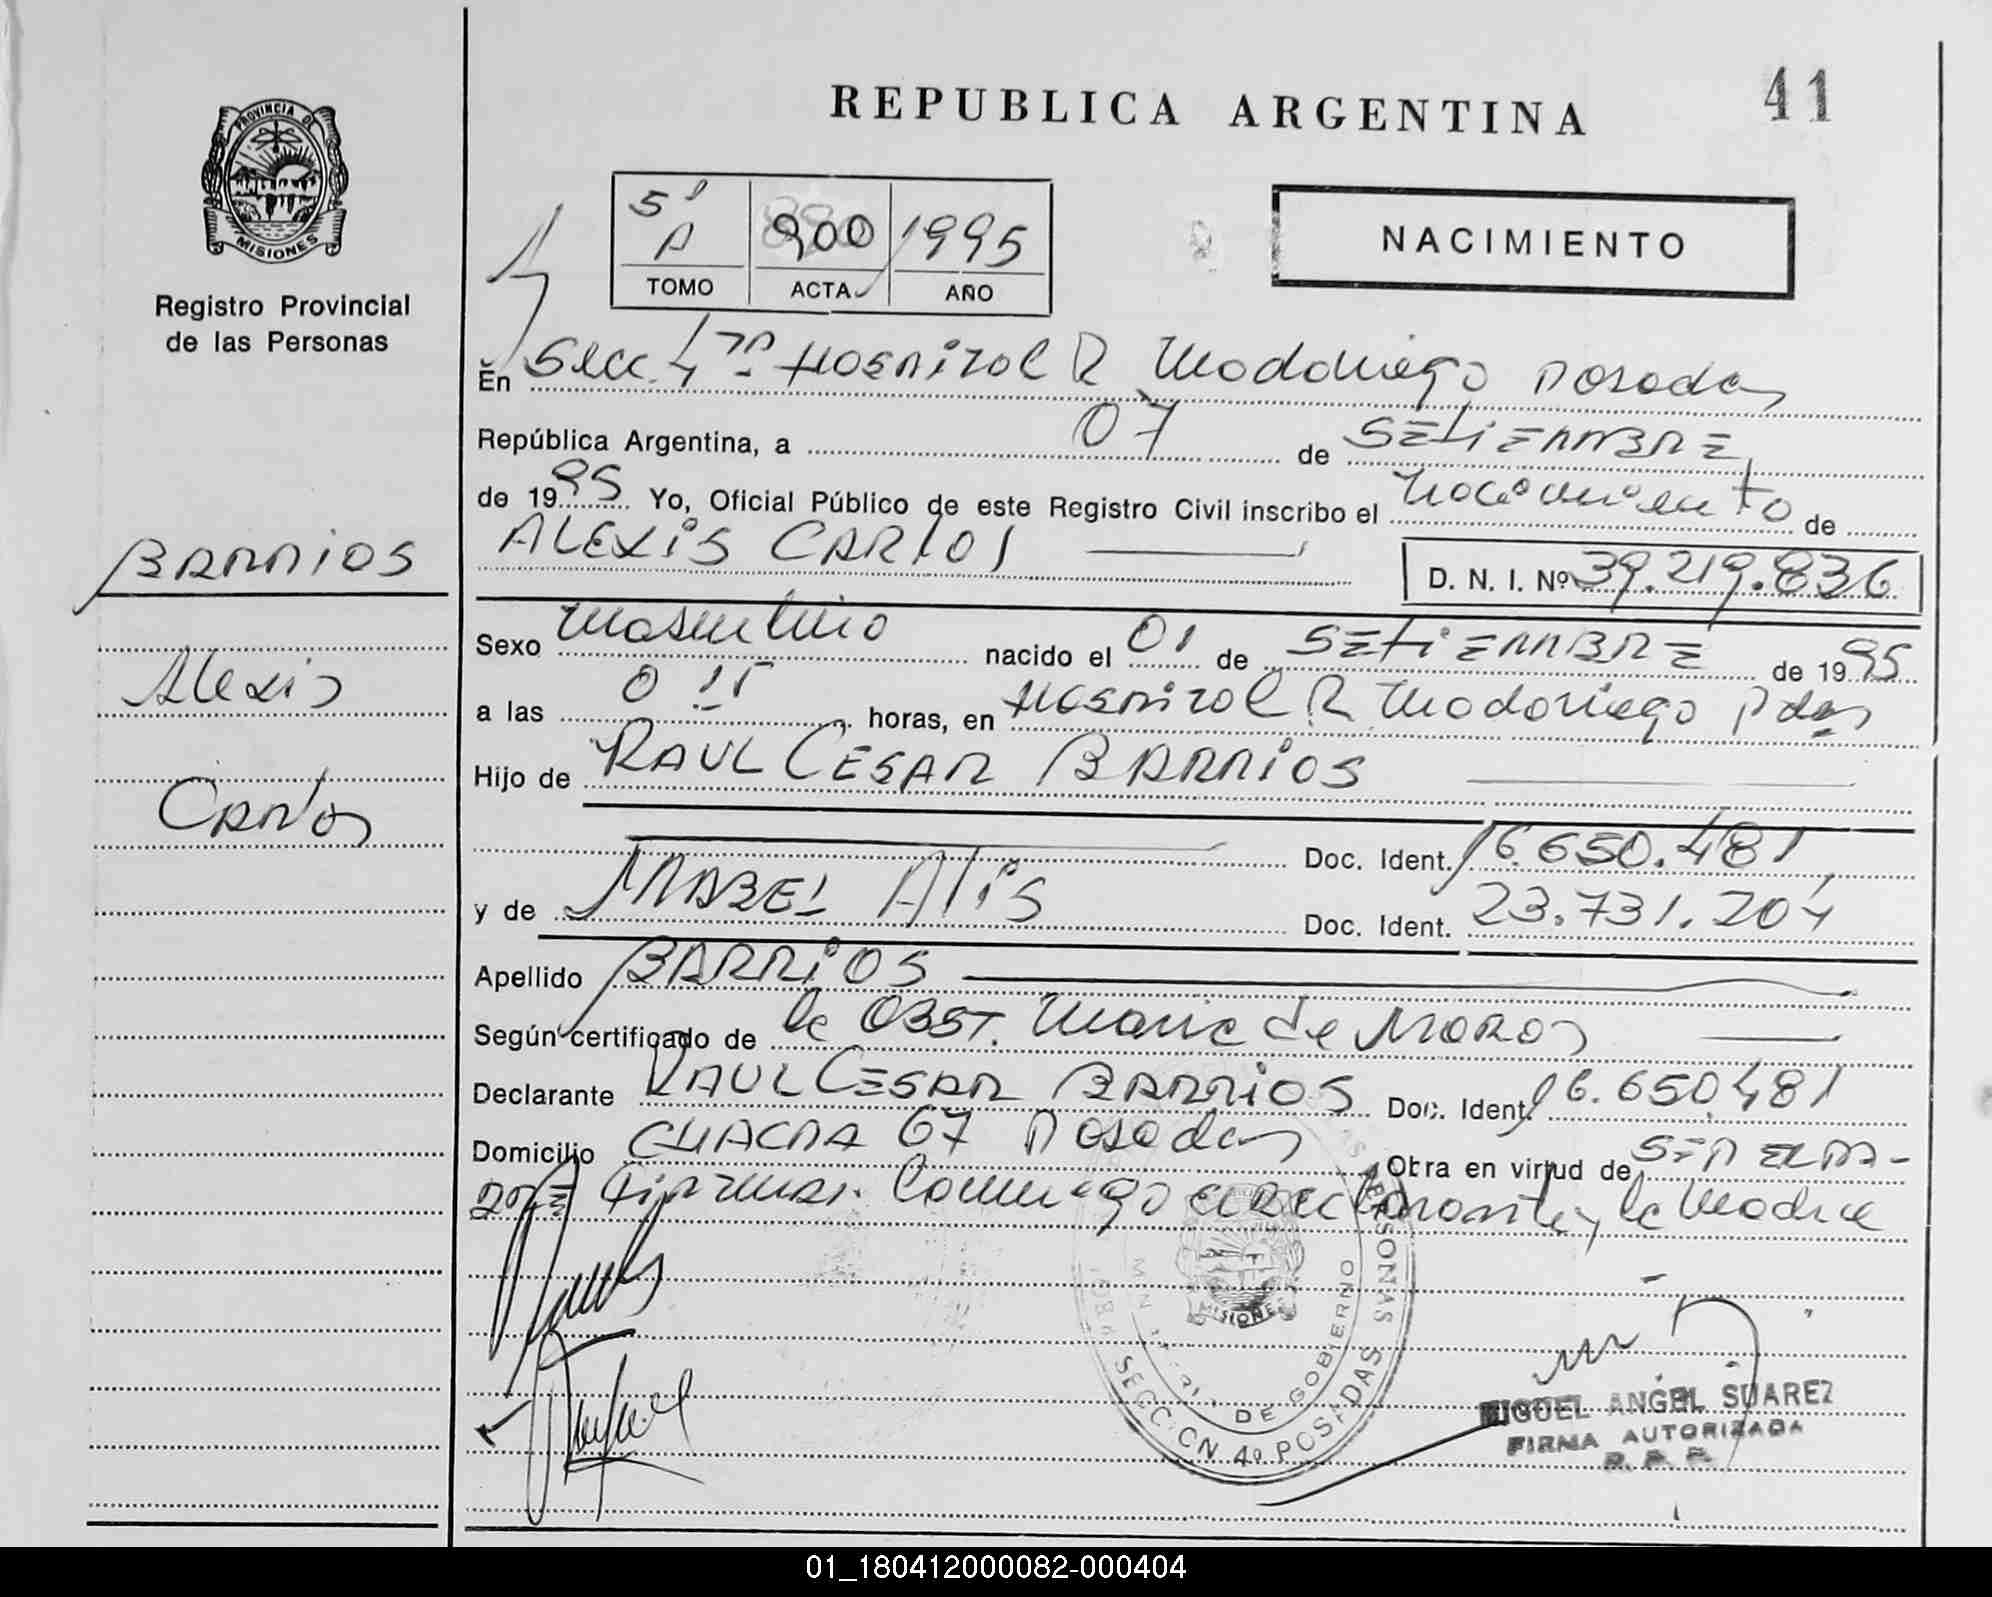 PROVINCIA DE
MISIONES
Registro Provincial
de las Personas
REPUBLICA ARGENTINA
41
5º A
900
1995
TOMO
ACTA
AÑO
NACIMIENTO
En Secc. 4ta Hospital R. Madariaga Posadas
República Argentina, a 07 de SETIEMBRE
de 1995 Yo, Oficial Público de este Registro Civil inscribo el nacimiento de
ALEXIS CARLOS
D. N. I. Nº 39.219.836
BARRIOS
Alexis
Carlos
Sexo Masculino nacido el 01 de SETIEMBRE de 1995
a las 0 horas, en Hospital R. Madariaga Pdas
Hijo de RAUL CESAR BARRIOS
Doc. Ident. 16.650.481
y de MABEL Doc. Ident. 23.731.204
Apellido BARRIOS
Según certificado de la OBST. Maria de
Declarante RAUL CESAR BARRIOS Doc. Ident. 16.650.481
Domicilio CHACRA 67 Posadas Otra en virtud de SER EL PA-
DRE Firman Conmigo el declarante y la Madre
MISIONES
DE GOBIERNO
SECCION 4º POSADAS
MIGUEL ANGEL SUAREZ
FIRMA AUTORIZADA
R. P. P.
01_180412000082-000404